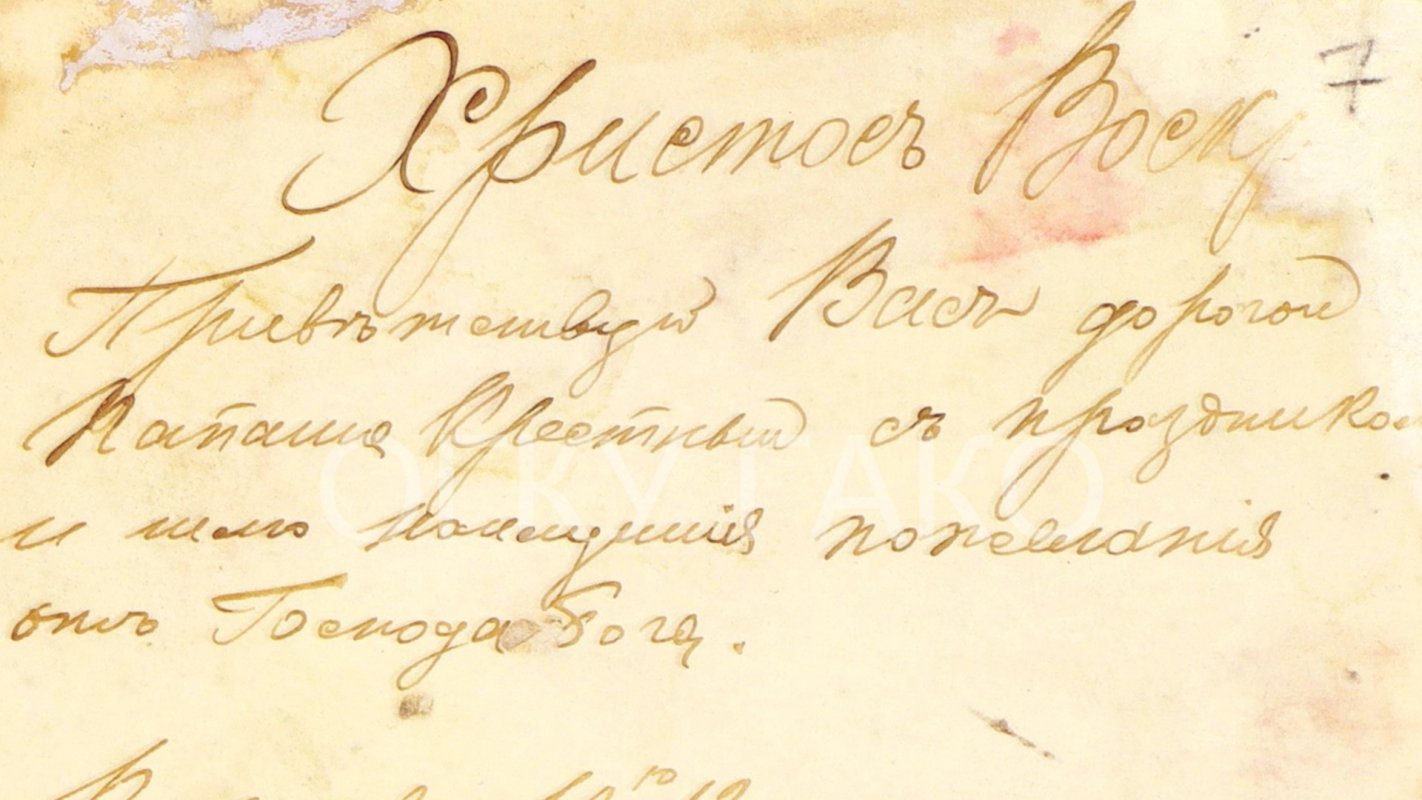 7
Христосъ Воскр
Привѣтствую Васъ дорогой
Папаша Крестный съ праздником
и шлю наилучшія пожеланія
отъ Господа Бога.
ОГКУ ГАКО